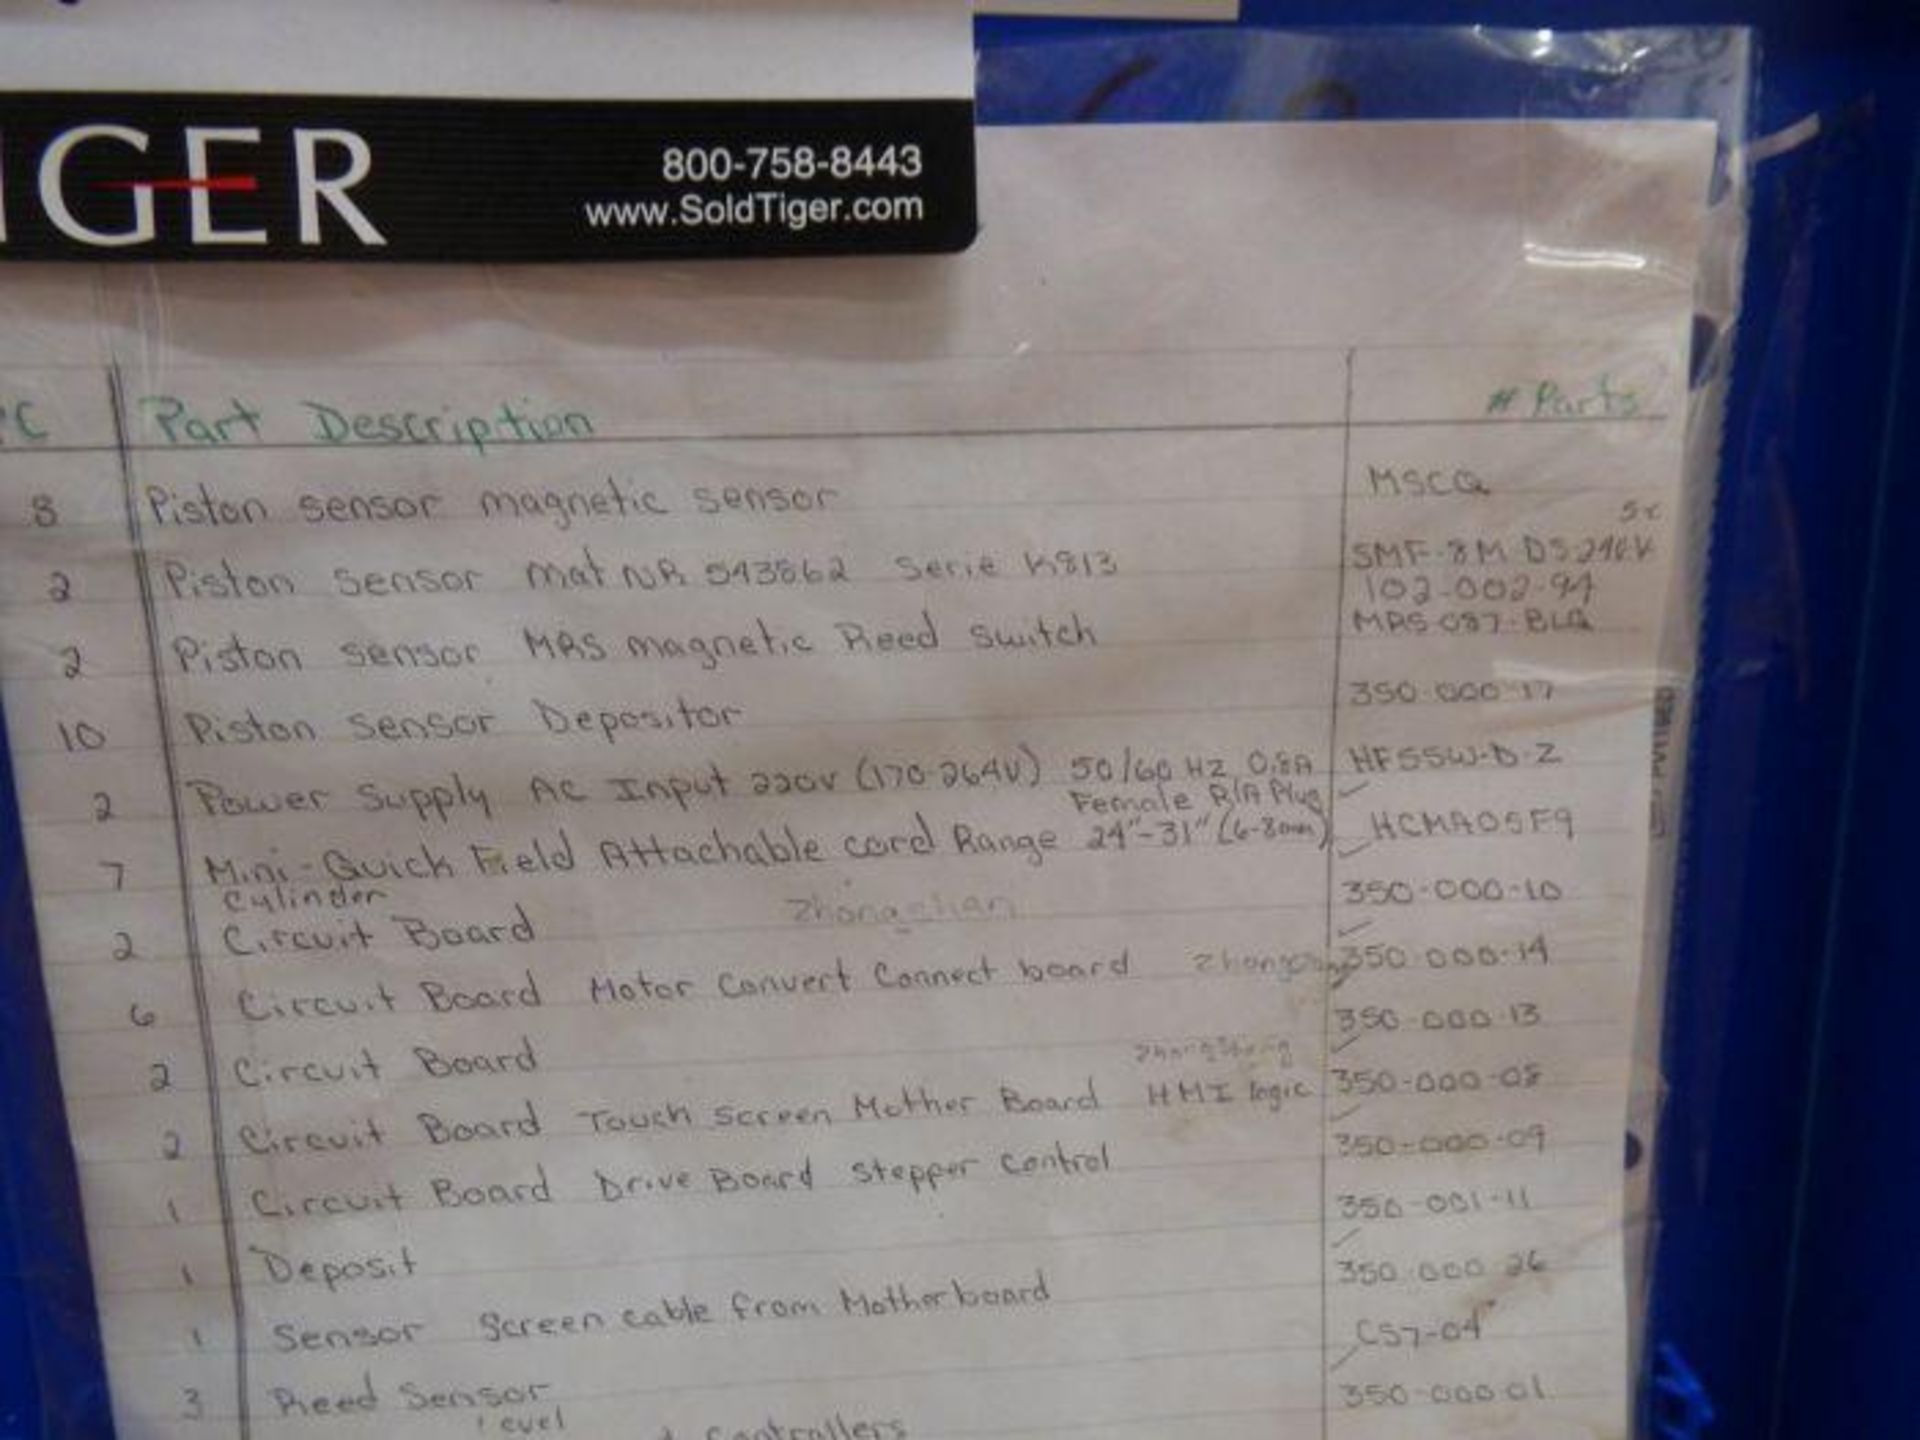 IGER
800-758-8443
www.SoldTiger.com
PC Part Description # Parts
8 Piston sensor magnetic sensor MSCQ
2 Piston sensor mat NR 543862 Serie K813 SMF-8M DS-240V
102-002-94
2 Piston sensor MRS magnetic Reed switch MRS-087-BLQ
10 Piston sensor Depositor 350-000-17
2 Power Supply AC Input 220V (170-264V) 50/60 HZ 0.8A HF55W-D-Z
Female R/A Plug
7 Mini-Quick Field Attachable cord Range 24"-31" (6-8mm) HCMA05F9
Cylinder
2 Circuit Board Zhongshan 350-000-10
6 Circuit Board Motor Convert Connect board 350-000-14
2 Circuit Board 350-000-13
2 Circuit Board Touch Screen Mother Board HMI logic 350-000-08
1 Circuit Board Drive Board Stepper Control 350-000-09
1 Deposit 350-001-11
1 Sensor Screen cable from Motherboard 350-000-26
3 Reed Sensor CS7-04
level Controllers 350-000-01